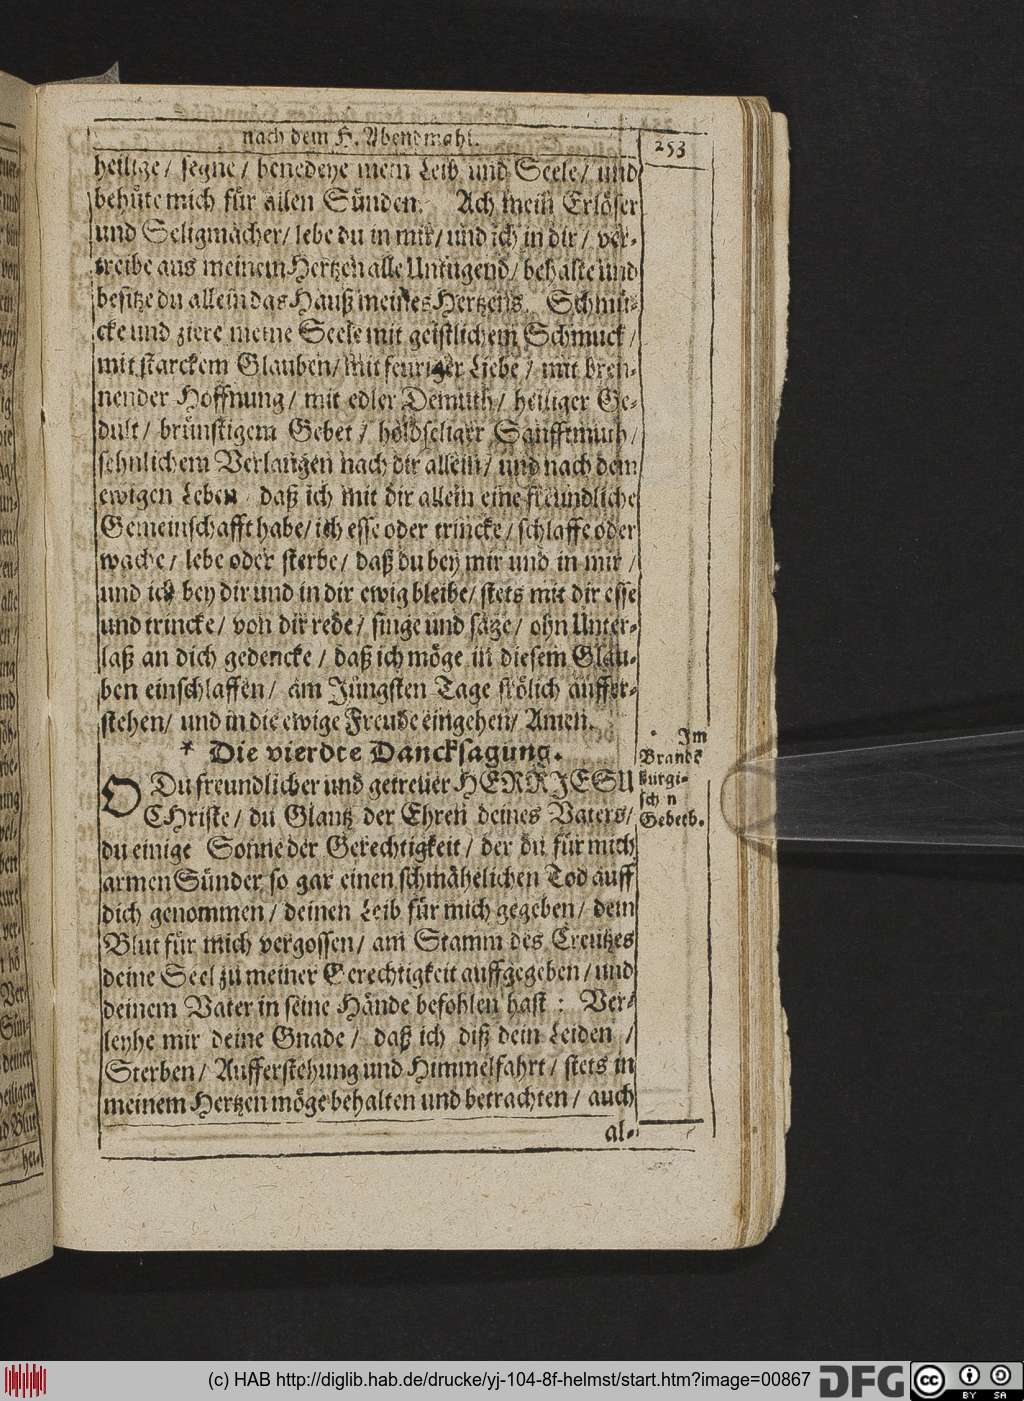 nach dem H. Abendmahl.
253
heilige/ segne/ benedeye mein Leib und Seele/ und
behüte mich für allen Sünden. Ach mein Erlöser
und Seligmacher/ lebe du in mir/ und ich in dir/ ver-
treibe aus meinem Hertzen alle Untugend/ behalte und
besitze du allein das Hauß meines Hertzens. Schmü-
cke und ziere meine Seele mit geistlichem Schmuck/
mit starckem Glauben/ mit feuriger Liebe/ mit bren-
nender Hoffnung/ mit edler Demuth/ heiliger Ge-
dult/ brünstigem Gebet/ holdseliger Sanfftmuth/
sehnlichem Verlangen nach dir allein/ und nach dem
ewigen Leben daß ich mit dir allein eine freundliche
Gemeinschafft habe/ ich esse oder trincke/ schlaffe oder
wache/ lebe oder sterbe/ daß du bey mir und in mir/
und ich bey dir und in dir ewig bleibe/ stets mit dir esse
und trincke/ von dir rede/ singe und sage/ ohn Unter-
laß an dich gedencke/ daß ich möge in diesem Glau-
ben einschlaffen/ am Jüngsten Tage frölich auffer-
stehen/ und in die ewige Freude eingehen/ Amen.
* Die vierdte Dancksagung.
* Im
Brande
burgi-
sch n
Gebetb.
O Du freundlicher und getreuer HERR JESU
CHriste/ du Glantz der Ehren deines Vaters/
du einige Sonne der Gerechtigkeit/ der du für mich
armen Sünder so gar einen schmählichen Tod auff
dich genommen/ deinen Leib für mich gegeben/ dein
Blut für mich vergossen/ am Stamm des Creutzes
deine Seel zu meiner Gerechtigkeit auffgegeben/ und
deinem Vater in seine Hände befohlen hast: Ver-
leyhe mir deine Gnade/ daß ich diß dein Leiden/
Sterben/ Aufferstehung und Himmelfahrt/ stets in
meinem Hertzen möge behalten und betrachten/ auch
al-
(c) HAB http://diglib.hab.de/drucke/yj-104-8f-helmst/start.htm?image=00867
DFG
cc
BY SA